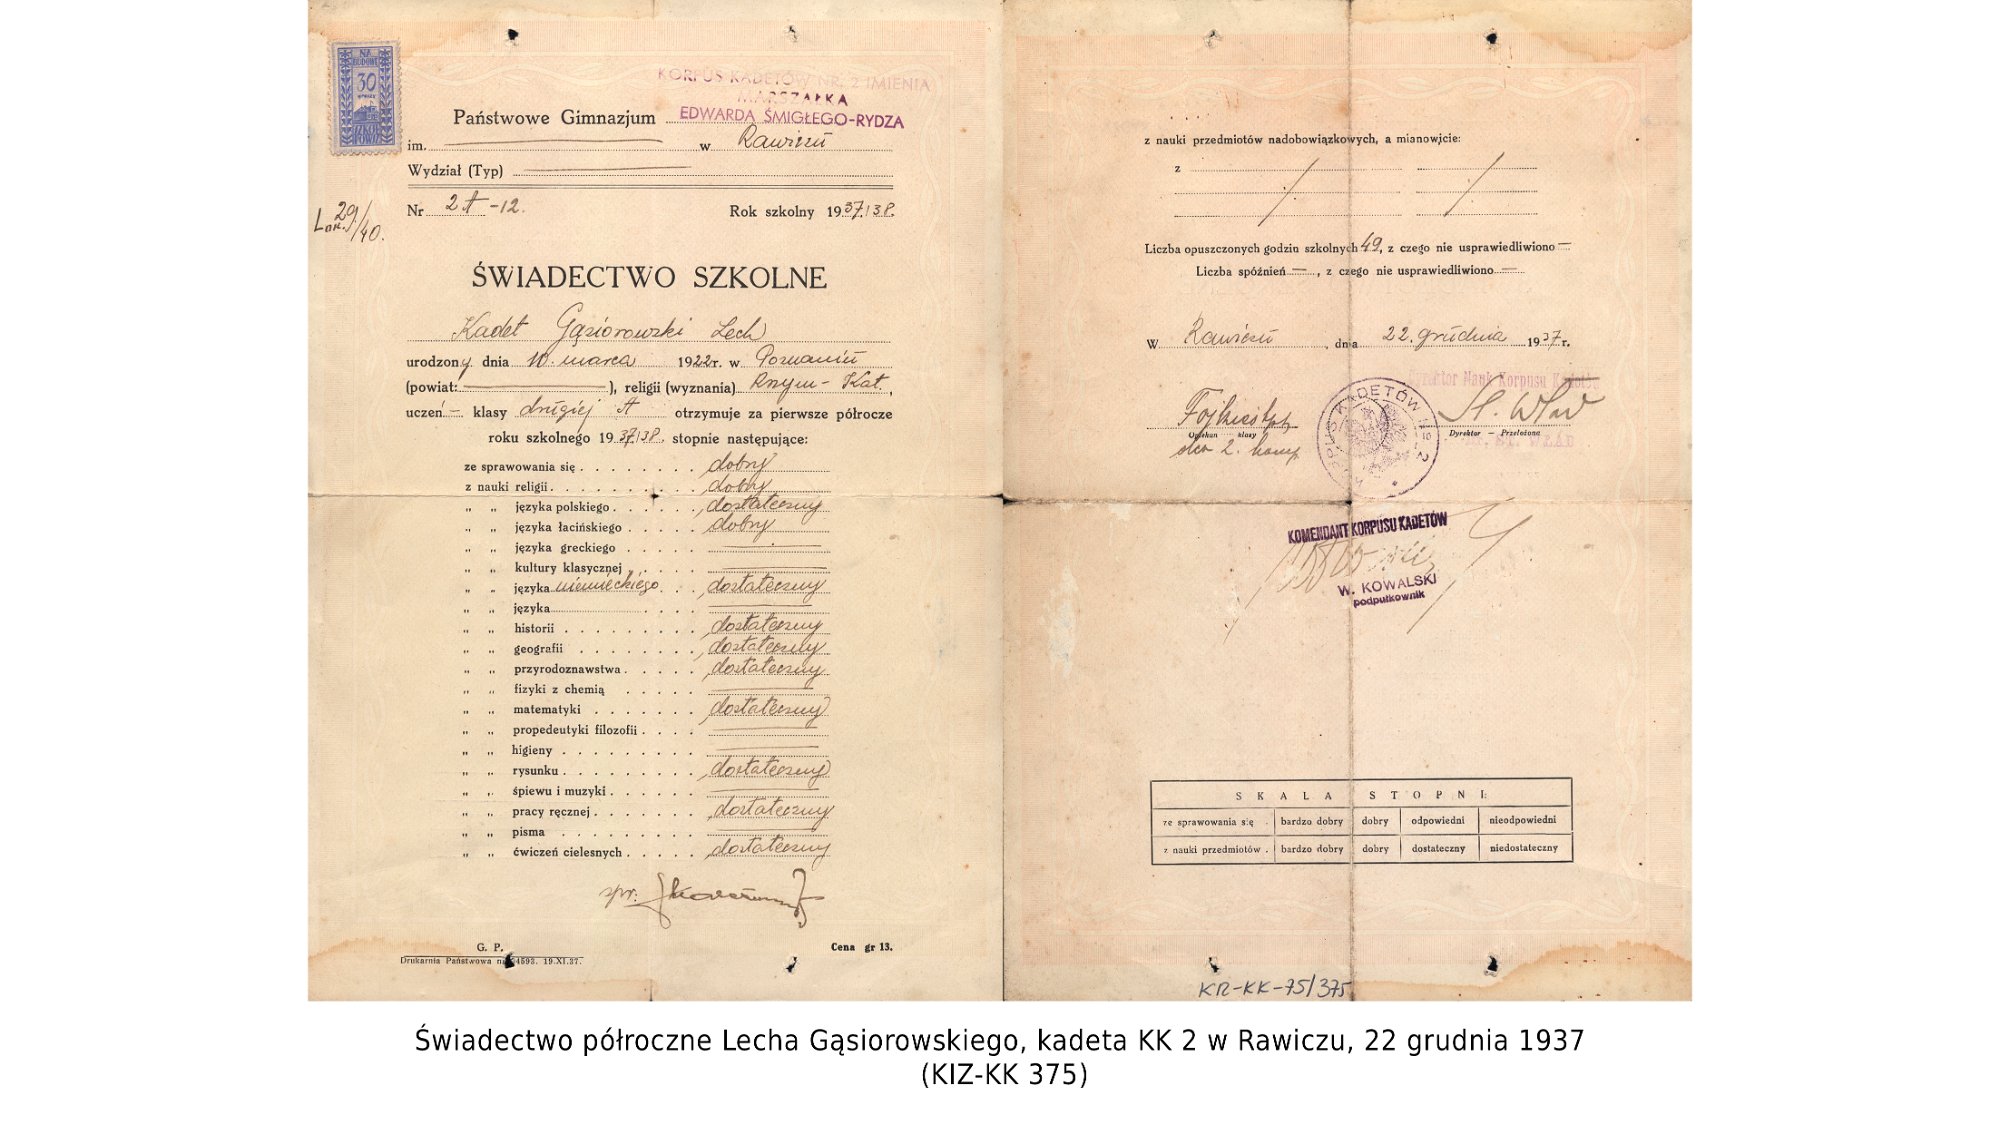 NA
BUDOWĘ
30
KORPUS KADETÓW NR. 2 IMIENIA
MARSZAŁKA
EDWARDA ŚMIGŁEGO-RYDZA
Państwowe Gimnazjum
im. w Rawiczu
Wydział (Typ)
Nr 2 A -12. Rok szkolny 1937/38.
29/40.
ŚWIADECTWO SZKOLNE
Kadet Gąsiorowski Lech
urodzony dnia 10. marca 1922r. w Poznaniu
(powiat: ), religii (wyznania) Rzym-Kat.,
uczeń — klasy drugiej A otrzymuje za pierwsze półrocze
roku szkolnego 1937/38. stopnie następujące:
ze sprawowania się . . . . . . . dobry
z nauki religii . . . . . . . . . dobry
„ „ języka polskiego . . . . . dostateczny
„ „ języka łacińskiego . . . . . dobry
„ „ języka greckiego . . . . . —
„ „ kultury klasycznej . . . . —
„ „ języka niemieckiego . . . dostateczny
„ „ języka . . . . —
„ „ historii . . . . . . . . . dostateczny
„ „ geografii . . . . . . . . dostateczny
„ „ przyrodoznawstwa . . . . . dostateczny
„ „ fizyki z chemią . . . . . —
„ „ matematyki . . . . . . . dostateczny
„ „ propedeutyki filozofii . . . . —
„ „ higieny . . . . . . . . . —
„ „ rysunku . . . . . . . . . dostateczny
„ „ śpiewu i muzyki . . . . . . —
„ „ pracy ręcznej . . . . . . . dostateczny
„ „ pisma . . . . . . . . . —
„ „ ćwiczeń cielesnych . . . . . dostateczny
spr.
G. P.
Drukarnia Państwowa 4593. 19.XI.37.
Cena gr 13.
z nauki przedmiotów nadobowiązkowych, a mianowicie:
z
Liczba opuszczonych godzin szkolnych 49, z czego nie usprawiedliwiono —
Liczba spóźnień —, z czego nie usprawiedliwiono —
W Rawiczu, dnia 22. grudnia 1937 r.
Dyrektor Nauk Korpusu Kadetów
St. Wład
Opiekun klasy
Dyrektor – Przełożona
ST. WŁAD
2. komp
KORPUS KADETÓW № 2
KOMENDANT KORPUSU KADETÓW
W. KOWALSKI
podpułkownik
SKALA STOPNI:
ze sprawowania się . bardzo dobry dobry odpowiedni nieodpowiedni
z nauki przedmiotów . bardzo dobry dobry dostateczny niedostateczny
KR-KK-75/375
Świadectwo półroczne Lecha Gąsiorowskiego, kadeta KK 2 w Rawiczu, 22 grudnia 1937
(KIZ-KK 375)